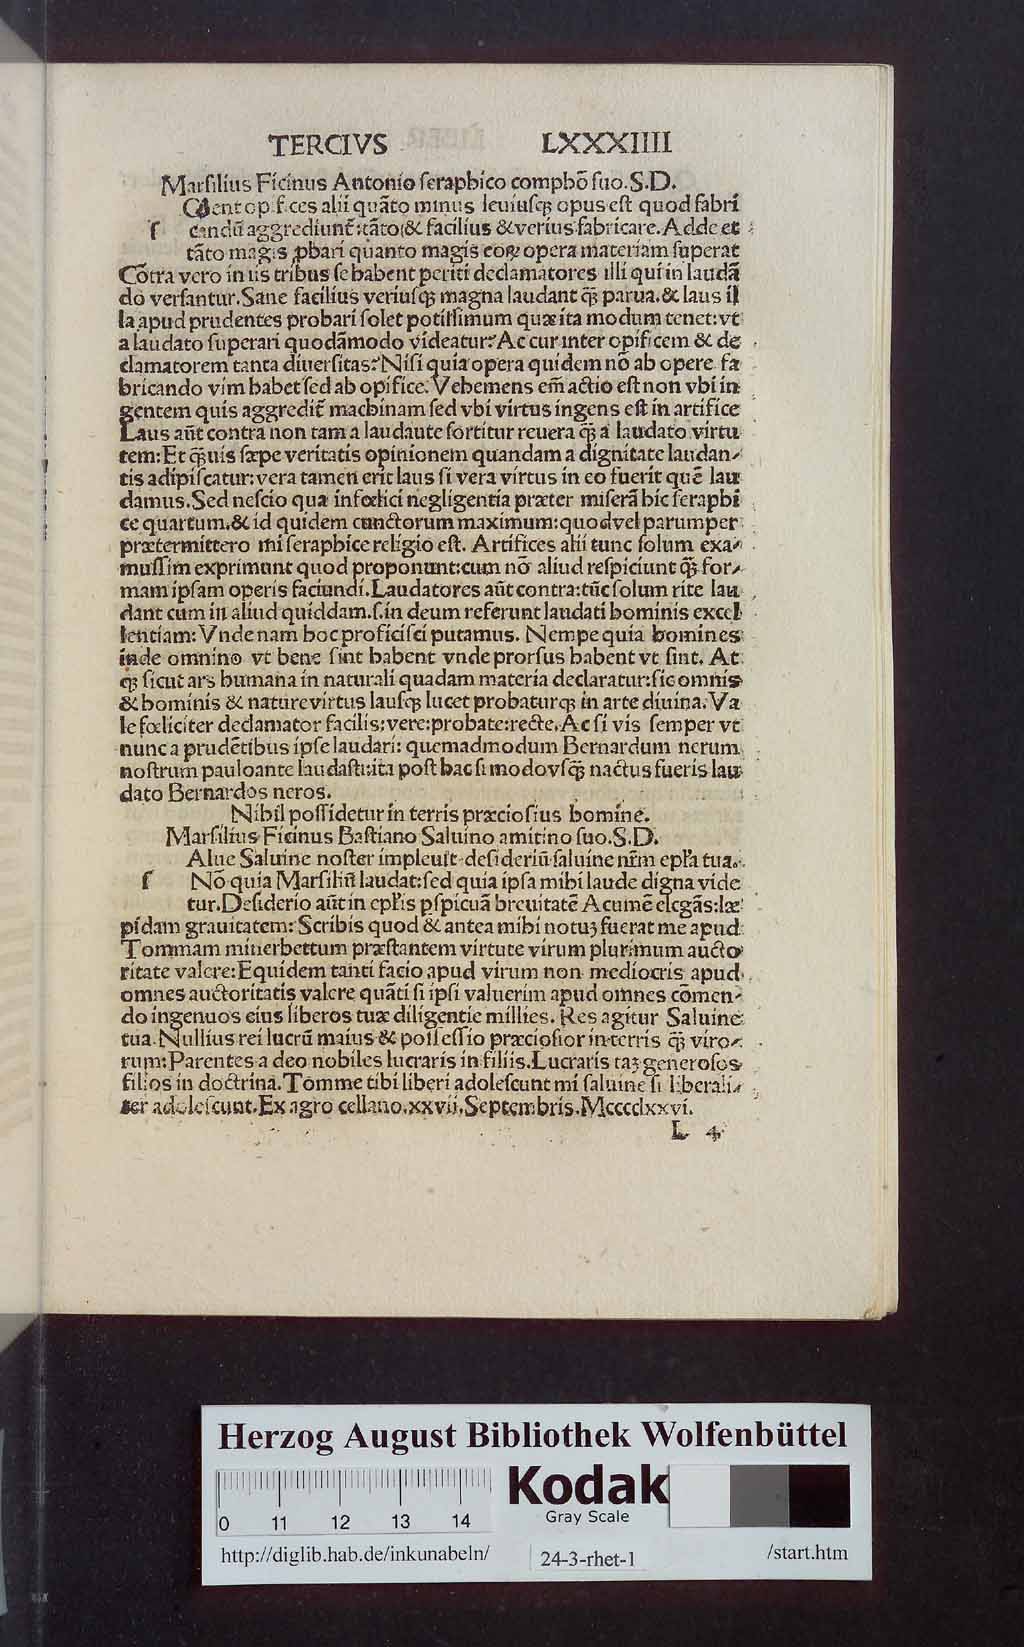 TERCIVS LXXXIIII
Marſilius Ficinus Antonio ſeraphico compbõ ſuo.S.D.
ſces alii quãto minus leuiuſq; opus eſt quod fabri
ſ candũ aggrediunt̃:tãto & facilius & verius fabricare. Adde et
tãto magis ꝓbari quanto magis eoꝝ opera materiam ſuperat
Cõtra vero in iis tribus ſe habent periti declamatores illi qui in laudã
do verſantur. Sane facilius veriuſq; magna laudant q̃ parua. & laus il
la apud prudentes probari ſolet potiſſimum quæ ita modum tenet: vt
a laudato ſuperari quodãmodo videatur? Ac cur inter opificem & de
clamatorem tanta diuerſitas? Niſi quia opera quidem nõ ab opere fa
bricando vim habet ſed ab opifice. Vehemens em̃ actio eſt non vbi in
gentem quis aggredit̃ machinam ſed vbi virtus ingens eſt in artifice
Laus aũt contra non tam a laudaute ſortitur reuera q̃ a laudato virtu
tem: Et q̃uis ſæpe veritatis opinionem quandam a dignitate laudan⸗
tis adipiſcatur: vera tamen erit laus ſi vera virtus in eo fuerit quẽ lau
damus. Sed neſcio qua infœlici negligentia præter miſerã hic ſeraphi
ce quartum. & id quidem cunctorum maximum: quod vel parumper
prætermittero mi ſeraphice religio eſt. Artifices alii tunc ſolum exa⸗
muſſim exprimunt quod proponunt: cum nõ aliud reſpiciunt q̃ for⸗
mam ipſam operis faciundi. Laudatores aũt contra: tũc ſolum rite lau
dant cum in aliud quiddam.ſ.in deum referunt laudati hominis excel
lentiam: Vnde nam hoc proficiſci putamus. Nempe quia homines
inde omnino vt bene ſint habent vnde prorſus habent vt ſint. At
q; ſicut ars humana in naturali quadam materia declaratur: ſic omnis
& hominis & nature virtus lauſq; lucet probaturq; in arte diuina. Va
le fœliciter declamator facilis; vere: probate: recte. Ac ſi vis ſemper vt
nunc a prudẽtibus ipſe laudari: quemadmodum Bernardum nerum
noſtrum pauloante laudaſti: ita poſt hac ſi modo vſq̃ nactus fueris lau
dato Bernardos neros.
Nihil poſſidetur in terris præcioſius homine.
Marſilius Ficinus Baſtiano Saluino amitino ſuo.S.D.
Alue Saluine noſter impleuit deſideriũ ſaluine nr̃m epl̃a tua.
ſ Nõ quia Marſiliũ laudat: ſed quia ipſa mihi laude digna vide
tur. Deſiderio aũt in epl̃is ꝑſpicuã breuitatẽ Acumẽ elegãs: læ
pidam grauitatem: Scribis quod & antea mihi notuꝫ fuerat me apud
Tommam minerbettum præſtantem virtute virum plurimum aucto
ritate valere: Equidem tanti facio apud virum non mediocris apud
omnes auctoritatis valere quãti ſi ipſi valuerim apud omnes cõmen⸗
do ingenuos eius liberos tuæ diligentie millies. Res agitur Saluine
tua. Nullius rei lucrũ maius & poſſeſſio præcioſior in terris q̃ viro⸗
rum: Parentes a deo nobiles lucraris in filiis. Lucraris taꝫ generoſos
filios in doctrina. Tomme tibi liberi adoleſcunt mi ſaluine ſi liberali⸗
ter adoleſcunt. Ex agro cellano. xxvii. Septembris. MccccLxxvi.
L 4
Herzog August Bibliothek Wolfenbüttel
0 11 12 13 14
Kodak
Gray Scale
http://diglib.hab.de/inkunabeln/ 24-3-rhet-1 /start.htm